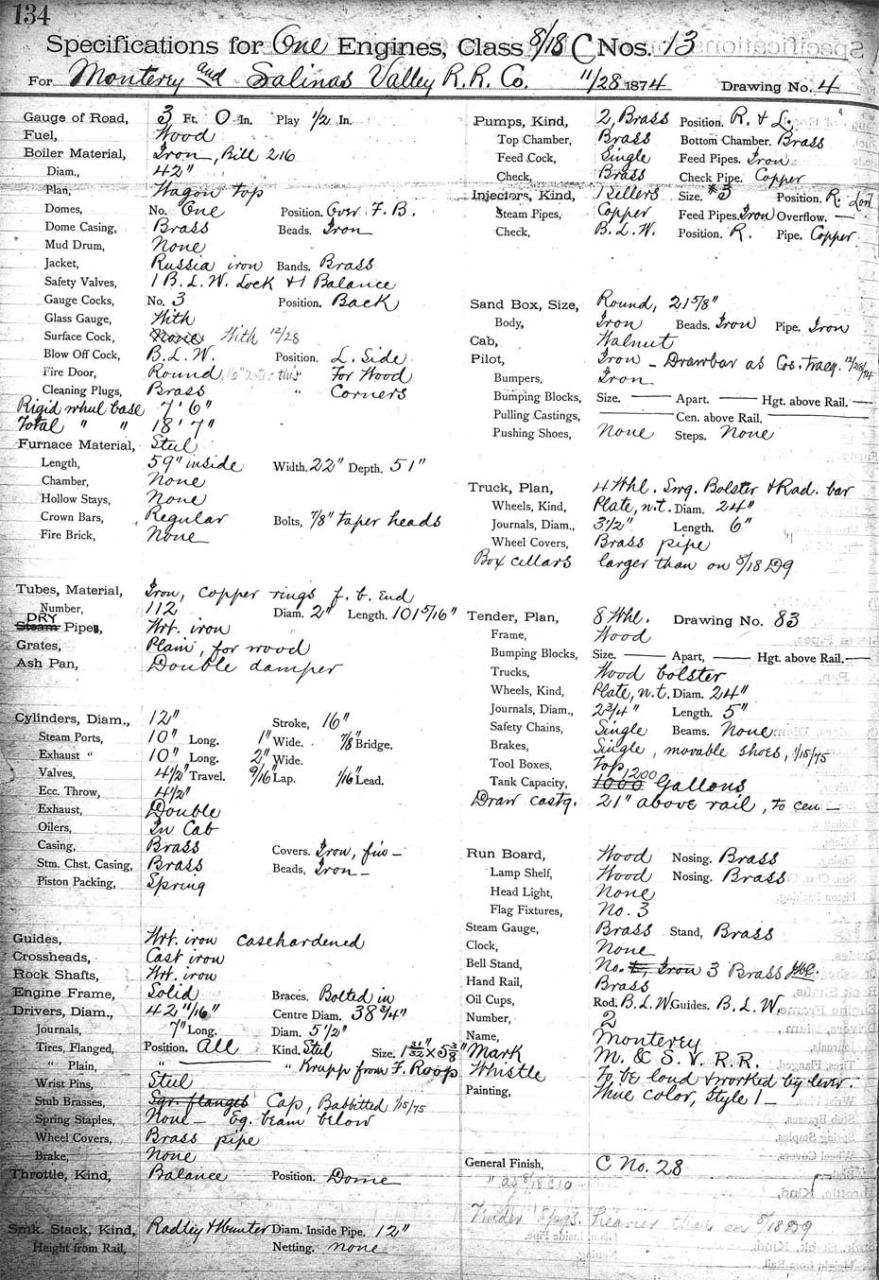 134
Specifications for One Engines, Class 8/18 C Nos. 13
For Monterey and Salinas Valley R.R. Co. 11/28 1874 Drawing No. 4
Gauge of Road, 3 Ft. 0 In. Play 1/2 In.
Fuel, Wood
Boiler Material, Iron, Bill 216
Diam., 42"
Plan, Wagon top
Domes, No. One Position. Over F. B.
Dome Casing, Brass Beads. Iron
Mud Drum, None
Jacket, Russia iron Bands. Brass
Safety Valves, 1 B. L. W. Lock & 1 Balance
Gauge Cocks, No. 3 Position. Back
Glass Gauge, With
Surface Cock, None With 12/28
Blow Off Cock, B. L. W. Position. L. Side
Fire Door, Round, For Wood
Cleaning Plugs, Brass " Corners
Rigid wheel base 7' 6"
Total " " 18' 7"
Furnace Material, Steel
Length, 59" inside Width. 22" Depth. 51"
Chamber, None
Hollow Stays, None
Crown Bars, Regular Bolts, 7/8" taper heads
Fire Brick, None
Tubes, Material, Iron, copper rings f. b. End
Number, 112 Diam. 2" Length. 101 5/16"
DRY
Steam Pipes, Wrt. iron
Grates, Plain, for wood
Ash Pan, Double damper
Cylinders, Diam., 12" Stroke, 16"
Steam Ports, 10" Long. 1" Wide. 7/8" Bridge.
Exhaust " 10" Long. 2" Wide.
Valves, 4 1/2" Travel. 9/16" Lap. 1/16" Lead.
Ecc. Throw, 4 1/2"
Exhaust, Double
Oilers, In Cab
Casing, Brass Covers. Iron, fin —
Stm. Chst. Casing, Brass Beads, Iron —
Piston Packing, Spring
Guides, Wrt. iron casehardened
Crossheads, Cast iron
Rock Shafts, Wrt. iron
Engine Frame, Solid Braces. Bolted in
Drivers, Diam., 42 11/16" Centre Diam. 38 3/4"
Journals, 7" Long. Diam. 5 1/2"
Tires, Flanged, Position. All Kind. Steel Size. 1 31/32" x 5 3/8"
" Plain, " — " Krupp from F. Roop
Wrist Pins, Steel
Stub Brasses, Sqr. flanges Cap, Babbitted 1/15/75
Spring Staples, None — Eq. beam below
Wheel Covers, Brass pipe
Brake, None
Throttle, Kind, Balance Position. Dome
Smk. Stack, Kind, Radley & Hunter Diam. Inside Pipe. 12"
Height from Rail, Netting. none
Pumps, Kind, 2, Brass Position. R. & L.
Top Chamber, Brass Bottom Chamber. Brass
Feed Cock, Single Feed Pipes. Iron
Check, Brass Check Pipe. Copper
Injectors, Kind, 1 Sellers Size. #3 Position. R.
Steam Pipes, Copper Feed Pipes. Iron Overflow. —
Check, B. L. W. Position. R. Pipe. Copper
Sand Box, Size, Round, 21 5/8"
Body, Iron Beads. Iron Pipe. Iron
Cab, Walnut
Pilot, Iron — Drawbar as Co's. tracg. 12/28/74
Bumpers, Iron
Bumping Blocks, Size. — Apart. — Hgt. above Rail. —
Pulling Castings, Cen. above Rail. —
Pushing Shoes, None Steps. None
Truck, Plan, 4 Whl. Swg. Bolster & Rad. bar
Wheels, Kind, Plate, n.t. Diam. 24"
Journals, Diam., 3 1/2" Length. 6"
Wheel Covers, Brass pipe
Box cellars larger than on 8/18 D9
Tender, Plan, 8 Whl. Drawing No. 83
Frame, Wood
Bumping Blocks, Size. — Apart, — Hgt. above Rail. —
Trucks, Wood bolster
Wheels, Kind, Plate, n.t. Diam. 24"
Journals, Diam., 2 3/4" Length. 5"
Safety Chains, Single Beams. None
Brakes, Single, movable shoes, 1/15/75
Tool Boxes, Top
Tank Capacity, 1000 1200 Gallons
Draw castg. 21" above rail, to cen —
Run Board, Wood Nosing. Brass
Lamp Shelf, Wood Nosing. Brass
Head Light, None
Flag Fixtures, No. 3
Steam Gauge, Brass Stand, Brass
Clock, None
Bell Stand, No. Iron 3 Brass
Hand Rail, Brass
Oil Cups, Rod. B. L. W. Guides. B. L. W.
Number, 2
Name, Monterey
Mark M. & S. V. R. R.
Whistle To be loud & worked by lever.
Painting, Wine color, Style 1 —
General Finish, C No. 28
" as 8/18 C10
Tender Spgs. heavier than on 8/18 D9